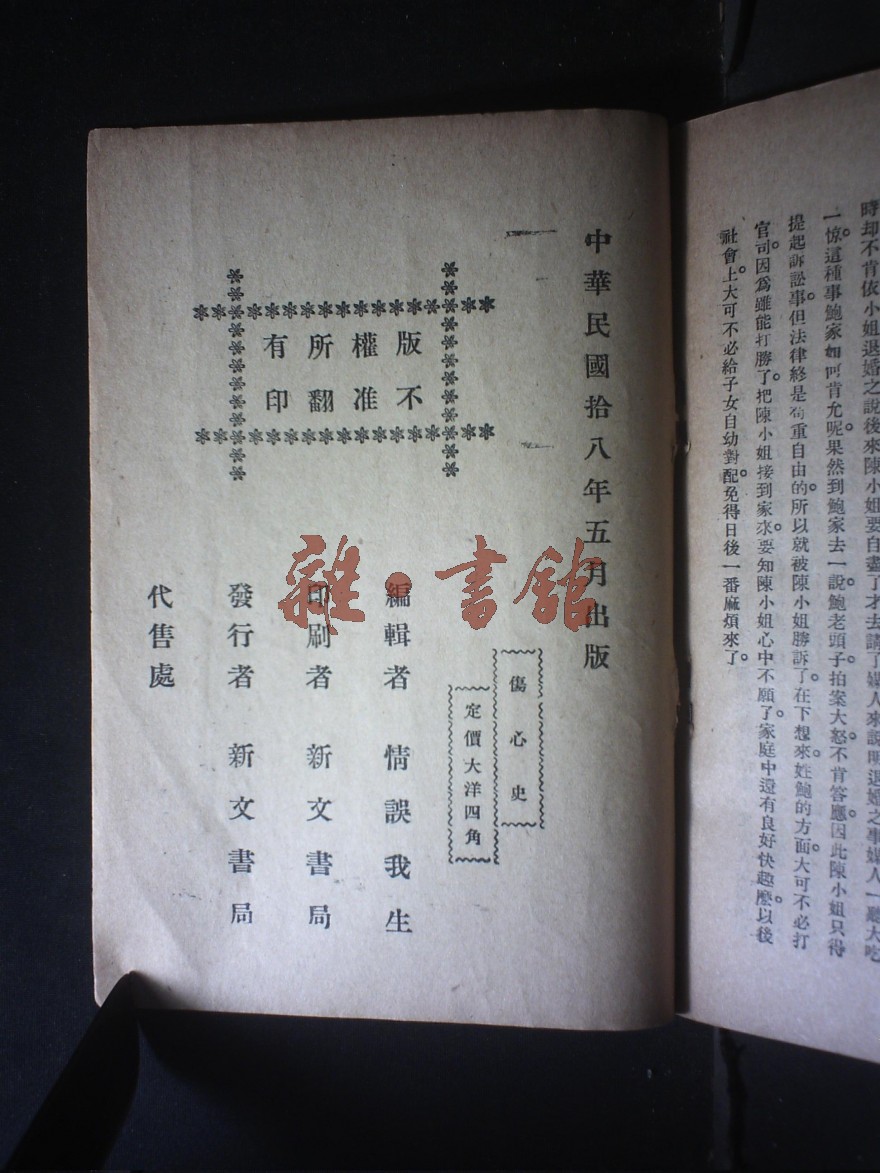 時却不肯依小姐退婚之說後來陳小姐要自盡了才去請了媒人來說明退婚之事媒人一聽大吃
一惊。這種事鮑家如何肯允呢。果然到鮑家去一說。鮑老頭子拍案大怒。不肯答應。因此陳小姐只得
提起訴訟事。但法律終是荷重自由的。所以就被陳小姐勝訴了。在下想來。姓鮑的方面。大可不必打
官司。因爲雖能打勝了。把陳小姐接到家來。要知陳小姐心中不願了。家庭中還有良好快趣麽。以後
社會上。大可不必給子女自幼對配。免得日後一番麻煩來了。
中華民國拾八年五月出版
傷心史
定價大洋四角
版權所有
不准翻印
編輯者 情誤我生
印刷者 新文書局
發行者 新文書局
代售處
雜·書館